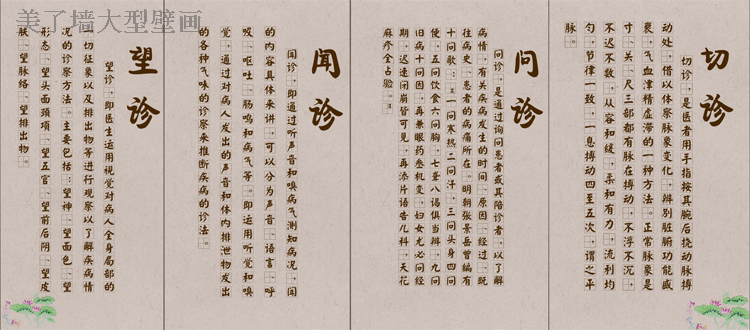 美了墙大型壁画
望诊
望诊，即医生运用视觉对病人全身局部的
一切征象以及排出物等进行观察以了解疾病情
况的诊察方法。主要包括：望神、望面色、望
形态、望头面颈项、望五官、望前后阴、望皮
肤、望脉络、望排出物。
闻诊
闻诊，即通过听声音和嗅病气测知病况，闻
的内容具体来讲，可以分为声音、语言、呼
吸、呕吐、肠鸣和病气等。即运用听觉和嗅
觉，通过对病人发出的声音和体内排泄物发出
的各种气味的诊察来推断疾病的诊法。
问诊
问诊，是通过询问患者或其陪诊者，以了解
病情，有关疾病发生的时间、原因、经过、既
往病史、患者的病痛所在。明朝张景岳曾编有
十问歌：“一问寒热二问汗，三问头身四问
便，五问饮食六问胸，七聋八渴俱当辩，九问
旧病十问因，再兼眼药叁机变，妇女尤必问经
期，迟速闭崩皆可见，再添片语告儿科，天花
麻疹全占验。”
切诊
切诊，是医者用手指按其腕后挠动脉搏
动处，借以体察脉象变化，辩别脏腑功能盛
衰，气血津精虚滞的一种方法。正常脉象是
寸、关、尺三部都有脉在搏动，不浮不沉，
不迟不数，从容和缓，柔和有力，流利均
匀，节律一致，一息搏动四至五次，谓之平
脉。